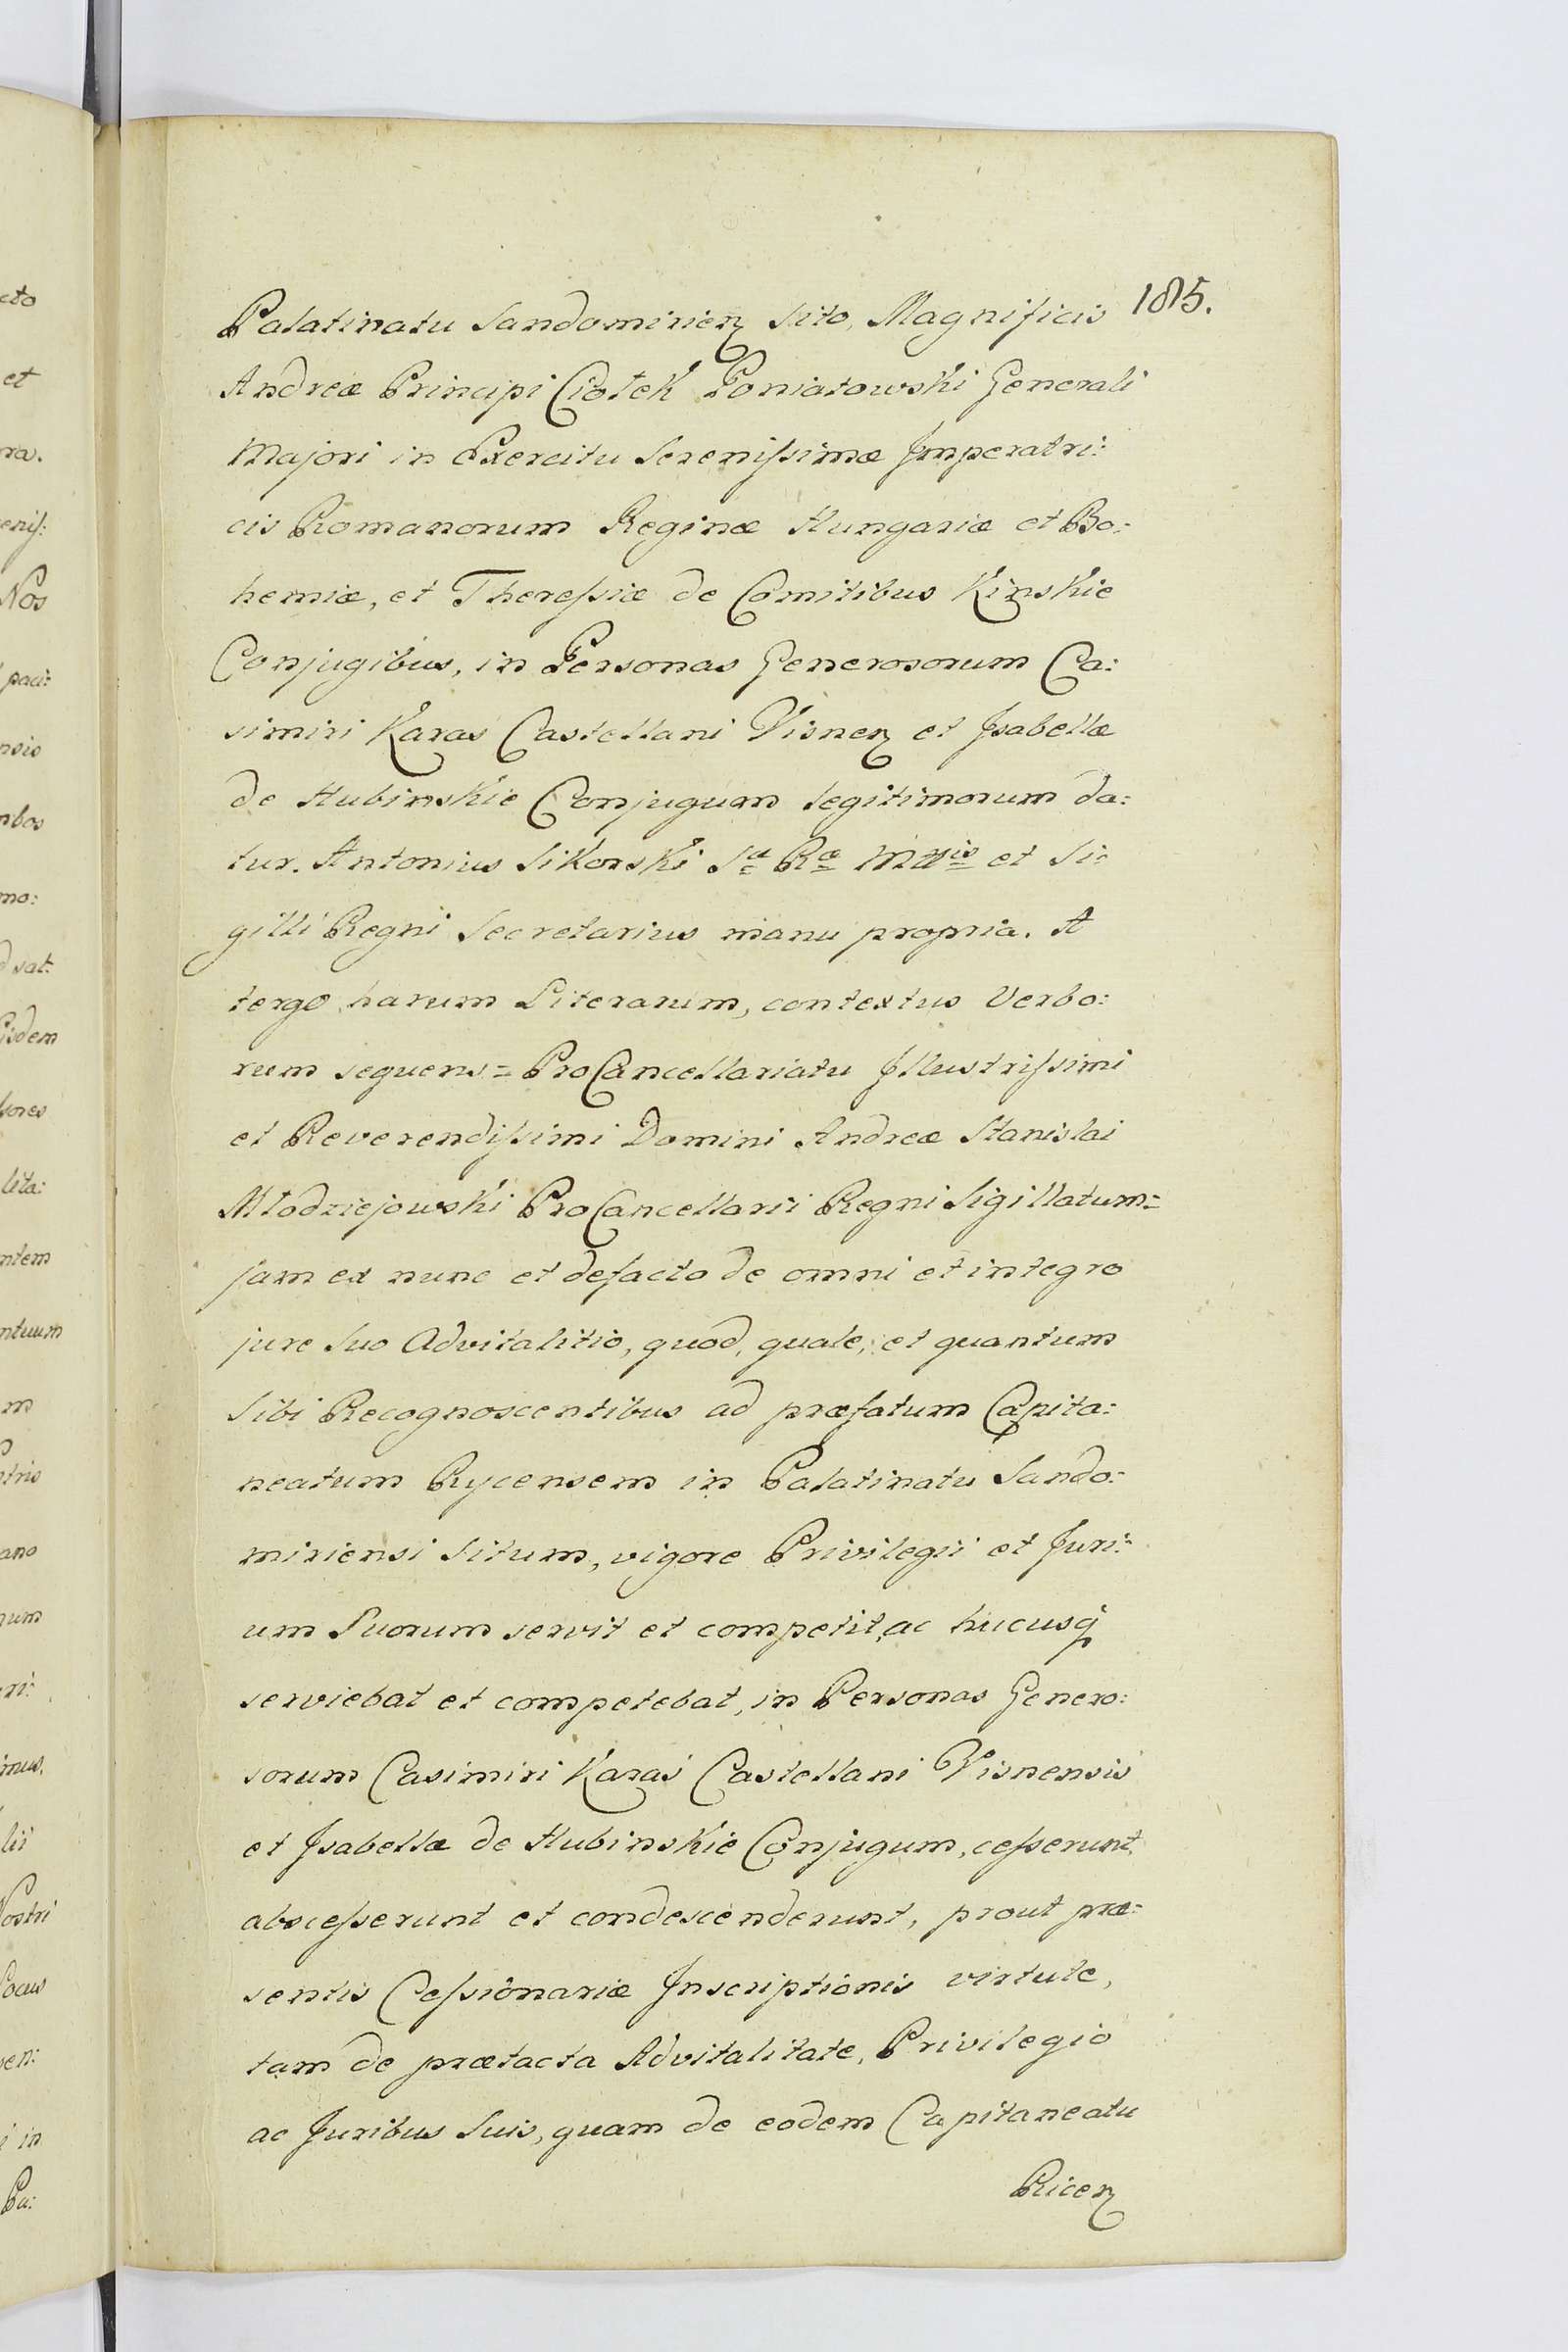 185.
Palatinatu Sandomirien sito, Magnificis
Andreæ Principi Ciołek Poniatowski Generali
Majori in Exercitu Serenissimæ Imperatri:
cis Romanorum Reginæ Hungariæ et Bo:
hemiæ, et Theressiæ de Comitibus Kinskie
Conjugibus, in Personas Generosorum Ca:
simiri Karas Castellani Visnen et Isabellæ
de Hubinskie Conjugum legitimorum da:
tur. Antonius Sikorski Sæ Ræ Mttis et Si:
gilli Regni Secretarius manu propria. A
tergo harum Literarum, contextus Verbo:
rum sequens = ProCancellariatu Illustrissimi
et Reverendissimi Domini Andreæ Stanislai
Młodziejowski ProCancellarii Regni Sigillatum =
jam ex nunc et defacto de omni et integro
jure suo Advitalitio, quod, quale, et quantum
Sibi Recognoscentibus ad præfatum Capita:
neatum Rycensem in Palatinatu Sando:
miriensi situm, vigore Privilegii et Juri:
um Suorum servit et competit, ac hucusq
serviebat et competebat, in Personas Genero:
sorum Casimiri Karaś Castellani Visnensis
et Isabellæ de Hubinskie Conjugum, cesserunt,
abscesserunt et condescenderunt, prout præ:
sentis Cessionariæ Inscriptionis virtute,
tam de prætacta Advitalitate, Privilegio
ac Juribus Suis, quam de eodem Capitaneatu
Ricen